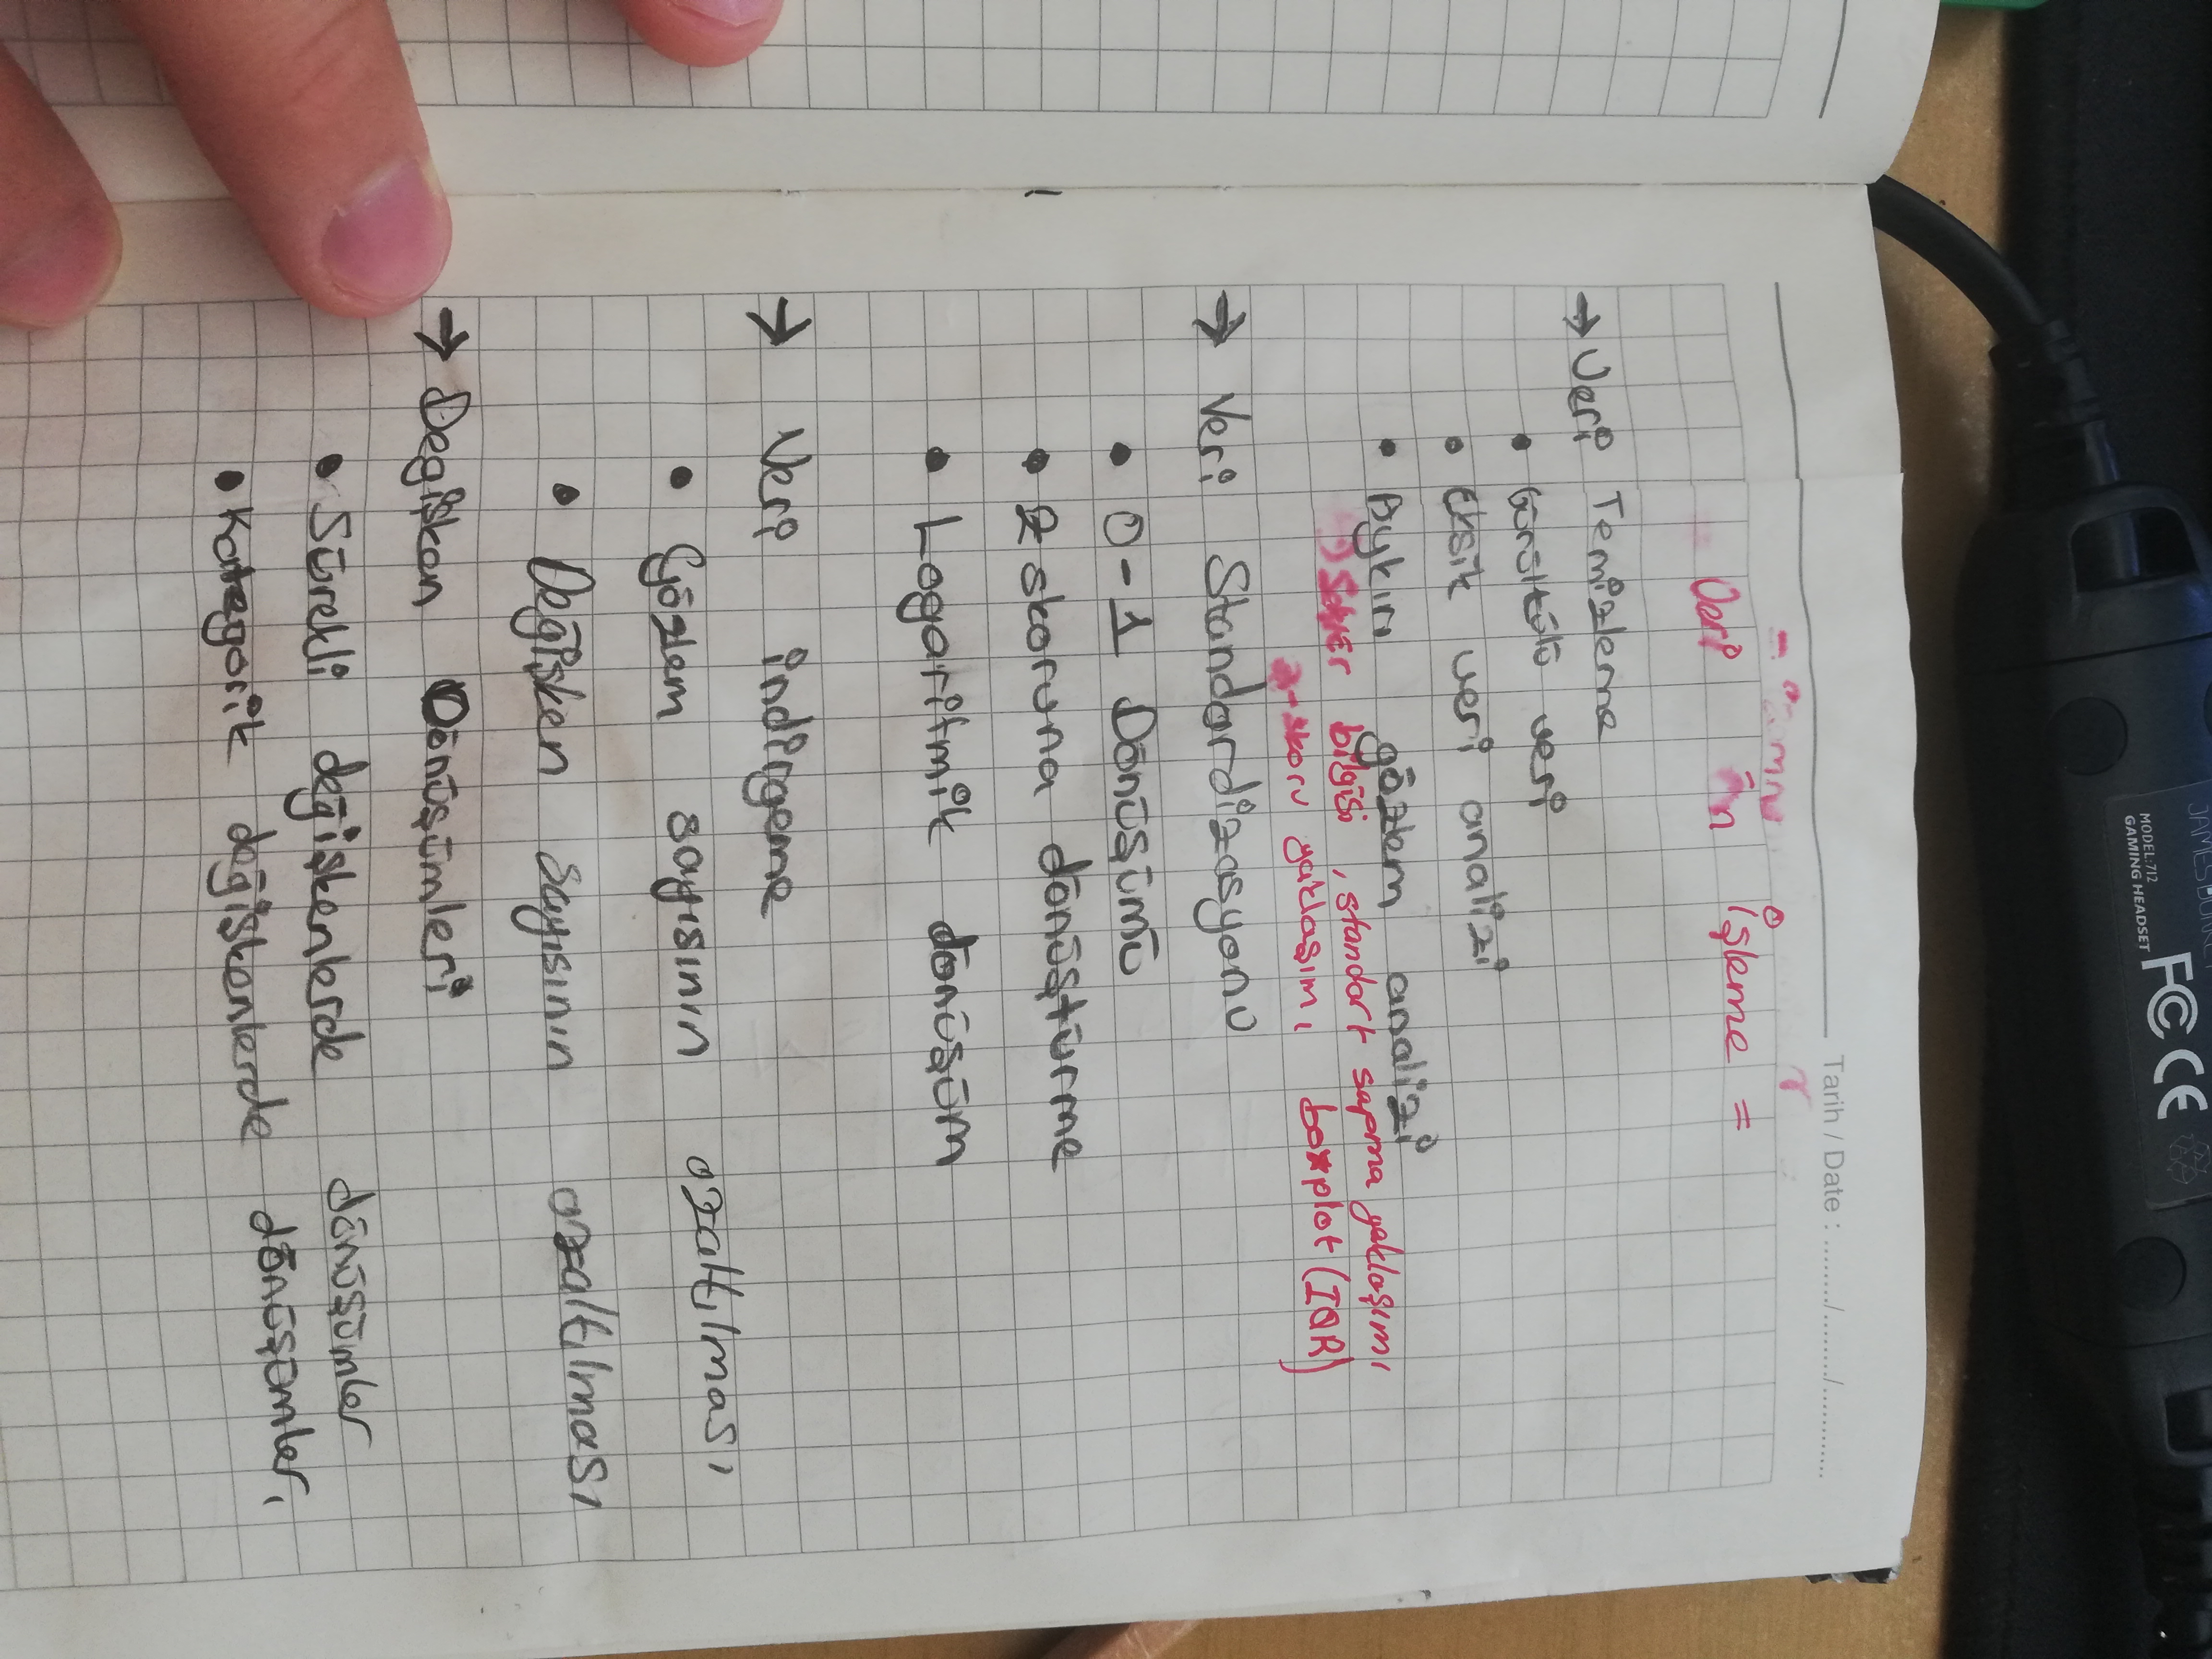 MODEL:712
GAMING HEADSET
FC CE
Tarih / Date : ......../......../............
Veri Ön İşleme =
→ Veri Temizleme
• Gürültülü veri
• Eksik veri analizi
• Aykırı gözlem analizi
→ Sektör bilgisi, standart sapma yaklaşımı
z-skoru yaklaşımı, boxplot (IQR)
→ Veri Standardizasyonu
• 0-1 Dönüşümü
• z skoruna dönüştürme
• Logaritmik dönüşüm
→ Veri indirgeme
• Gözlem sayısının azaltılması
• Değişken sayısının azaltılması
→ Değişken Dönüşümleri
• Sürekli değişkenlerde dönüşümler
• Kategorik değişkenlerde dönüşümler,